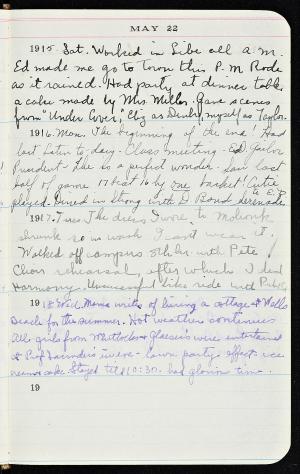 MAY 22
1915 Sat. Worked in Libe all a.m.
Ed made me go to town this P.M. Rode
as it rained. Had party at dinner table
a cake made by Mrs. Miller. Gave scenes
from "Under Cover", Eliz as Denby, myself as Taylor.
1916. Mon. The beginning of the end! Had
last Latin to-day. Class meeting - Ed
President - She is a perfect wonder. Saw last
half of game 17 beat 16 by one basket.
played. Dined in Strong with D Bond serenade
1917. Tues. The dress I wore to Mohonk
shrunk so in wash I can't wear it.
Walked off campus 8th hr. with Pete
Choir rehearsal, after which I did
Harmony. Unsuccessful bike ride with
1918 Wed. Mama writes of hiring a cottage at Wells
Beach for the summer. Hot weather continues
All girls from Whitlocks & Glasier's were entertained
at Prof Saunders in eve - lawn party effect - ice
cream & cake Stayed till 10:30. had glorious time.
19